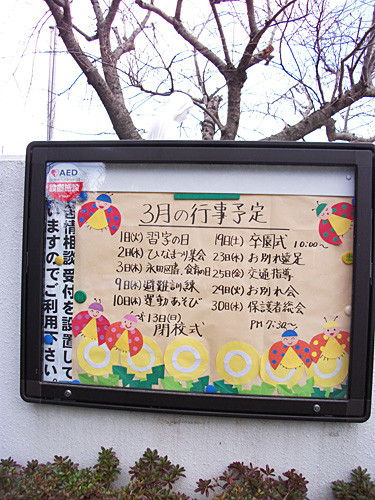 AED
設置施設
苦情相談受付を設置して
いますのでご利用ください。
3月の行事予定
1日(火) 習字の日
2日(水) ひなまつり集会
3日(木)
9日(水) 避難訓練
10日(木) 運動あそび
13日(日)
閉校式
19日(土) 卒園式
10:00~
23日(水) お別れ遠足
25日(金) 交通指導
29日(火) お別れ会
30日(水) 保護者総会
PM 7:30~